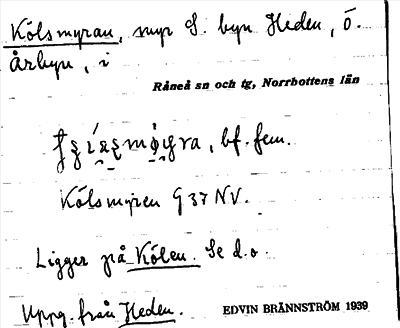 Kölsmyran, myr S. byn Heden, Ö.
Årbyn, i
Råneå sn och tg, Norrbottens län
bf. fem.
Kölsmyren G 37 NV.
Ligger på Kölen. Se d.o.
Uppg. från Heden.
EDVIN BRÄNNSTRÖM 1939